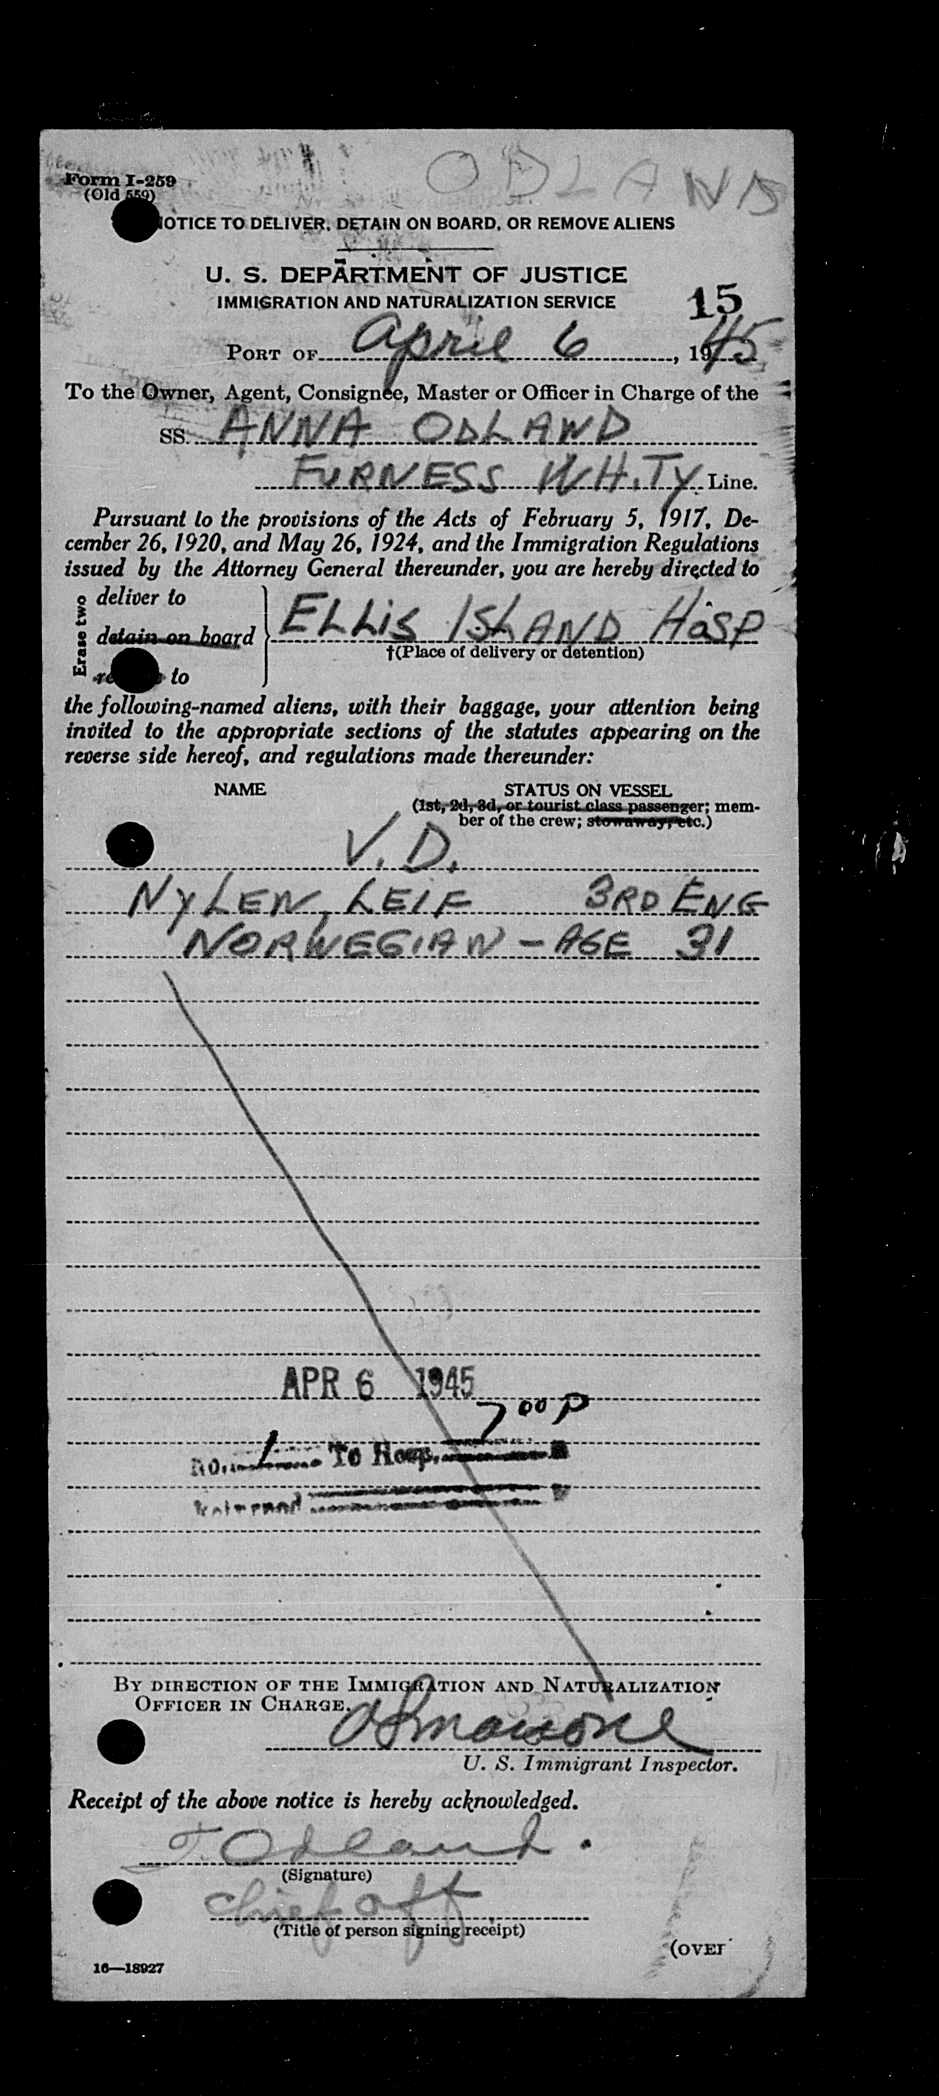 ODLAND
Form I-259
(Old 559)
NOTICE TO DELIVER, DETAIN ON BOARD, OR REMOVE ALIENS
U. S. DEPARTMENT OF JUSTICE
IMMIGRATION AND NATURALIZATION SERVICE
15
PORT OF April 6, 1945
To the Owner, Agent, Consignee, Master or Officer in Charge of the
SS. ANNA ODLAND
FURNESS WHITY Line.
Pursuant to the provisions of the Acts of February 5, 1917, De-
cember 26, 1920, and May 26, 1924, and the Immigration Regulations
issued by the Attorney General thereunder, you are hereby directed to
Erase two
deliver to
detain on board
to
ELLIS ISLAND HOSP
†(Place of delivery or detention)
the following-named aliens, with their baggage, your attention being
invited to the appropriate sections of the statutes appearing on the
reverse side hereof, and regulations made thereunder:
NAME STATUS ON VESSEL
(1st, 2d, 3d, or tourist class passenger; mem-
ber of the crew; stowaway, etc.)
V.D.
NYLEN, LEIF 3RD ENG
NORWEGIAN - AGE 31
APR 6 1945
7 00 P
No. 1 To Hosp.
BY DIRECTION OF THE IMMIGRATION AND NATURALIZATION
OFFICER IN CHARGE.
U. S. Immigrant Inspector.
Receipt of the above notice is hereby acknowledged.
T. Odland.
(Signature)
Chief off
(Title of person signing receipt)
(OVER
16—18927